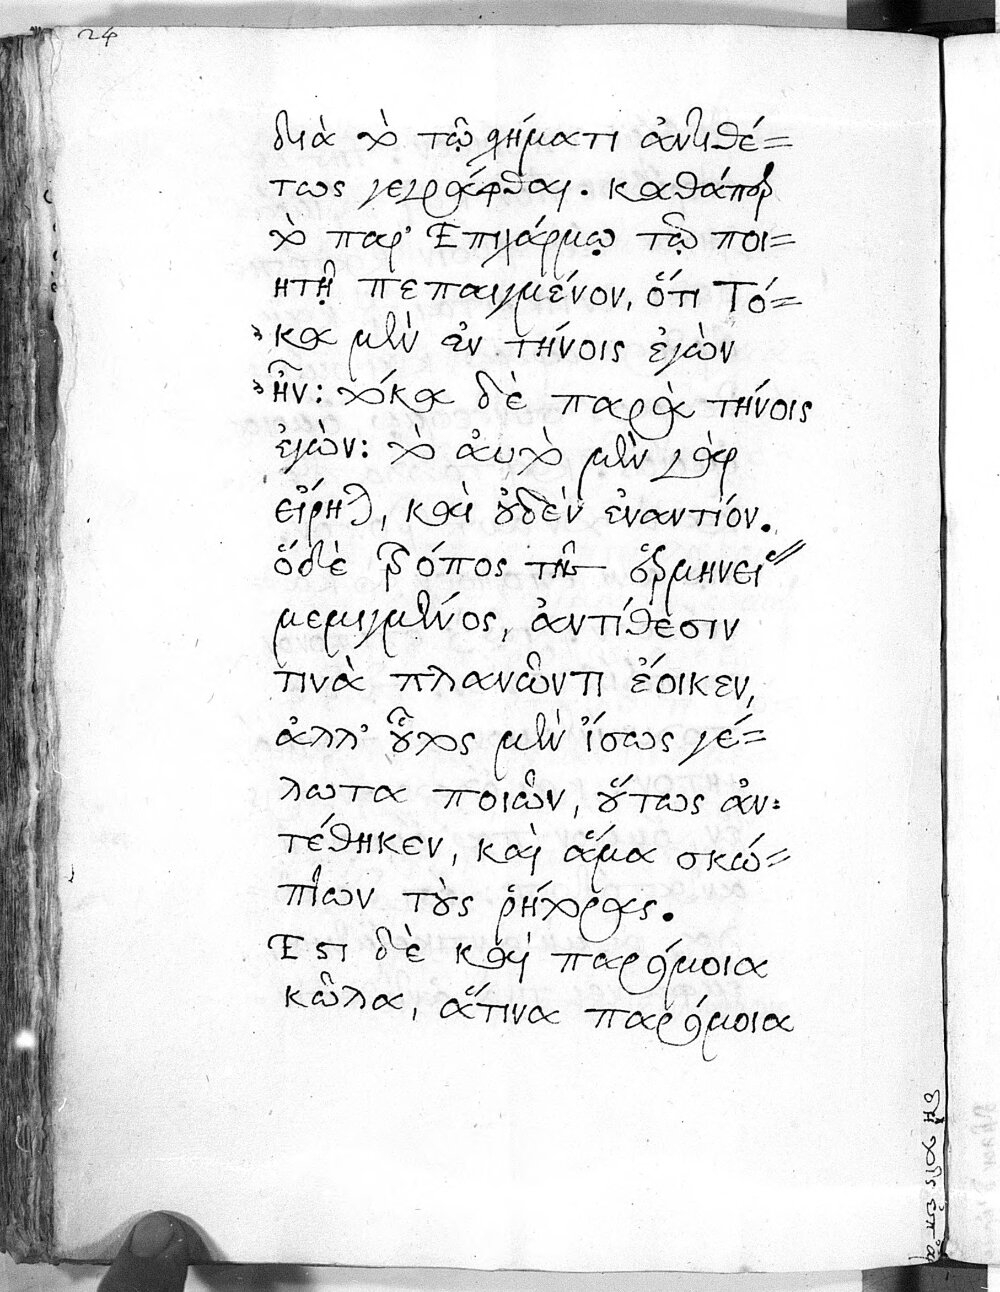 24
διὰ τὸ τῷ σχήματι ἀντιθέ=
τως γεγράφθαι. καθάπερ
τὸ παρ' Ἐπιχάρμῳ τῷ ποι=
ητῇ πεπαιγμένον, ὅτι Τό=
κα μὲν ἐν τήνοις ἐγὼν
ἦν: τόκα δὲ παρὰ τήνοις
ἐγών: τὸ αὐτὸ μὲν γὰρ
εἴρηται, καὶ οὐδὲν ἐναντίον.
ὁδὲ τρόπος τῆς ἑρμηνείας
μεμιγμένος, ἀντίθεσιν
τινὰ πλανῶντι ἔοικεν,
ἀλλ' οὗτος μὲν ἴσως γέ=
λωτα ποιῶν, οὕτως ἀν:
τέθηκεν, καὶ ἅμα σκώ=
πτων τοὺς ῥήτορας.
Ἔστι δὲ καὶ παρόμοια
κῶλα, ἅτινα παρόμοια